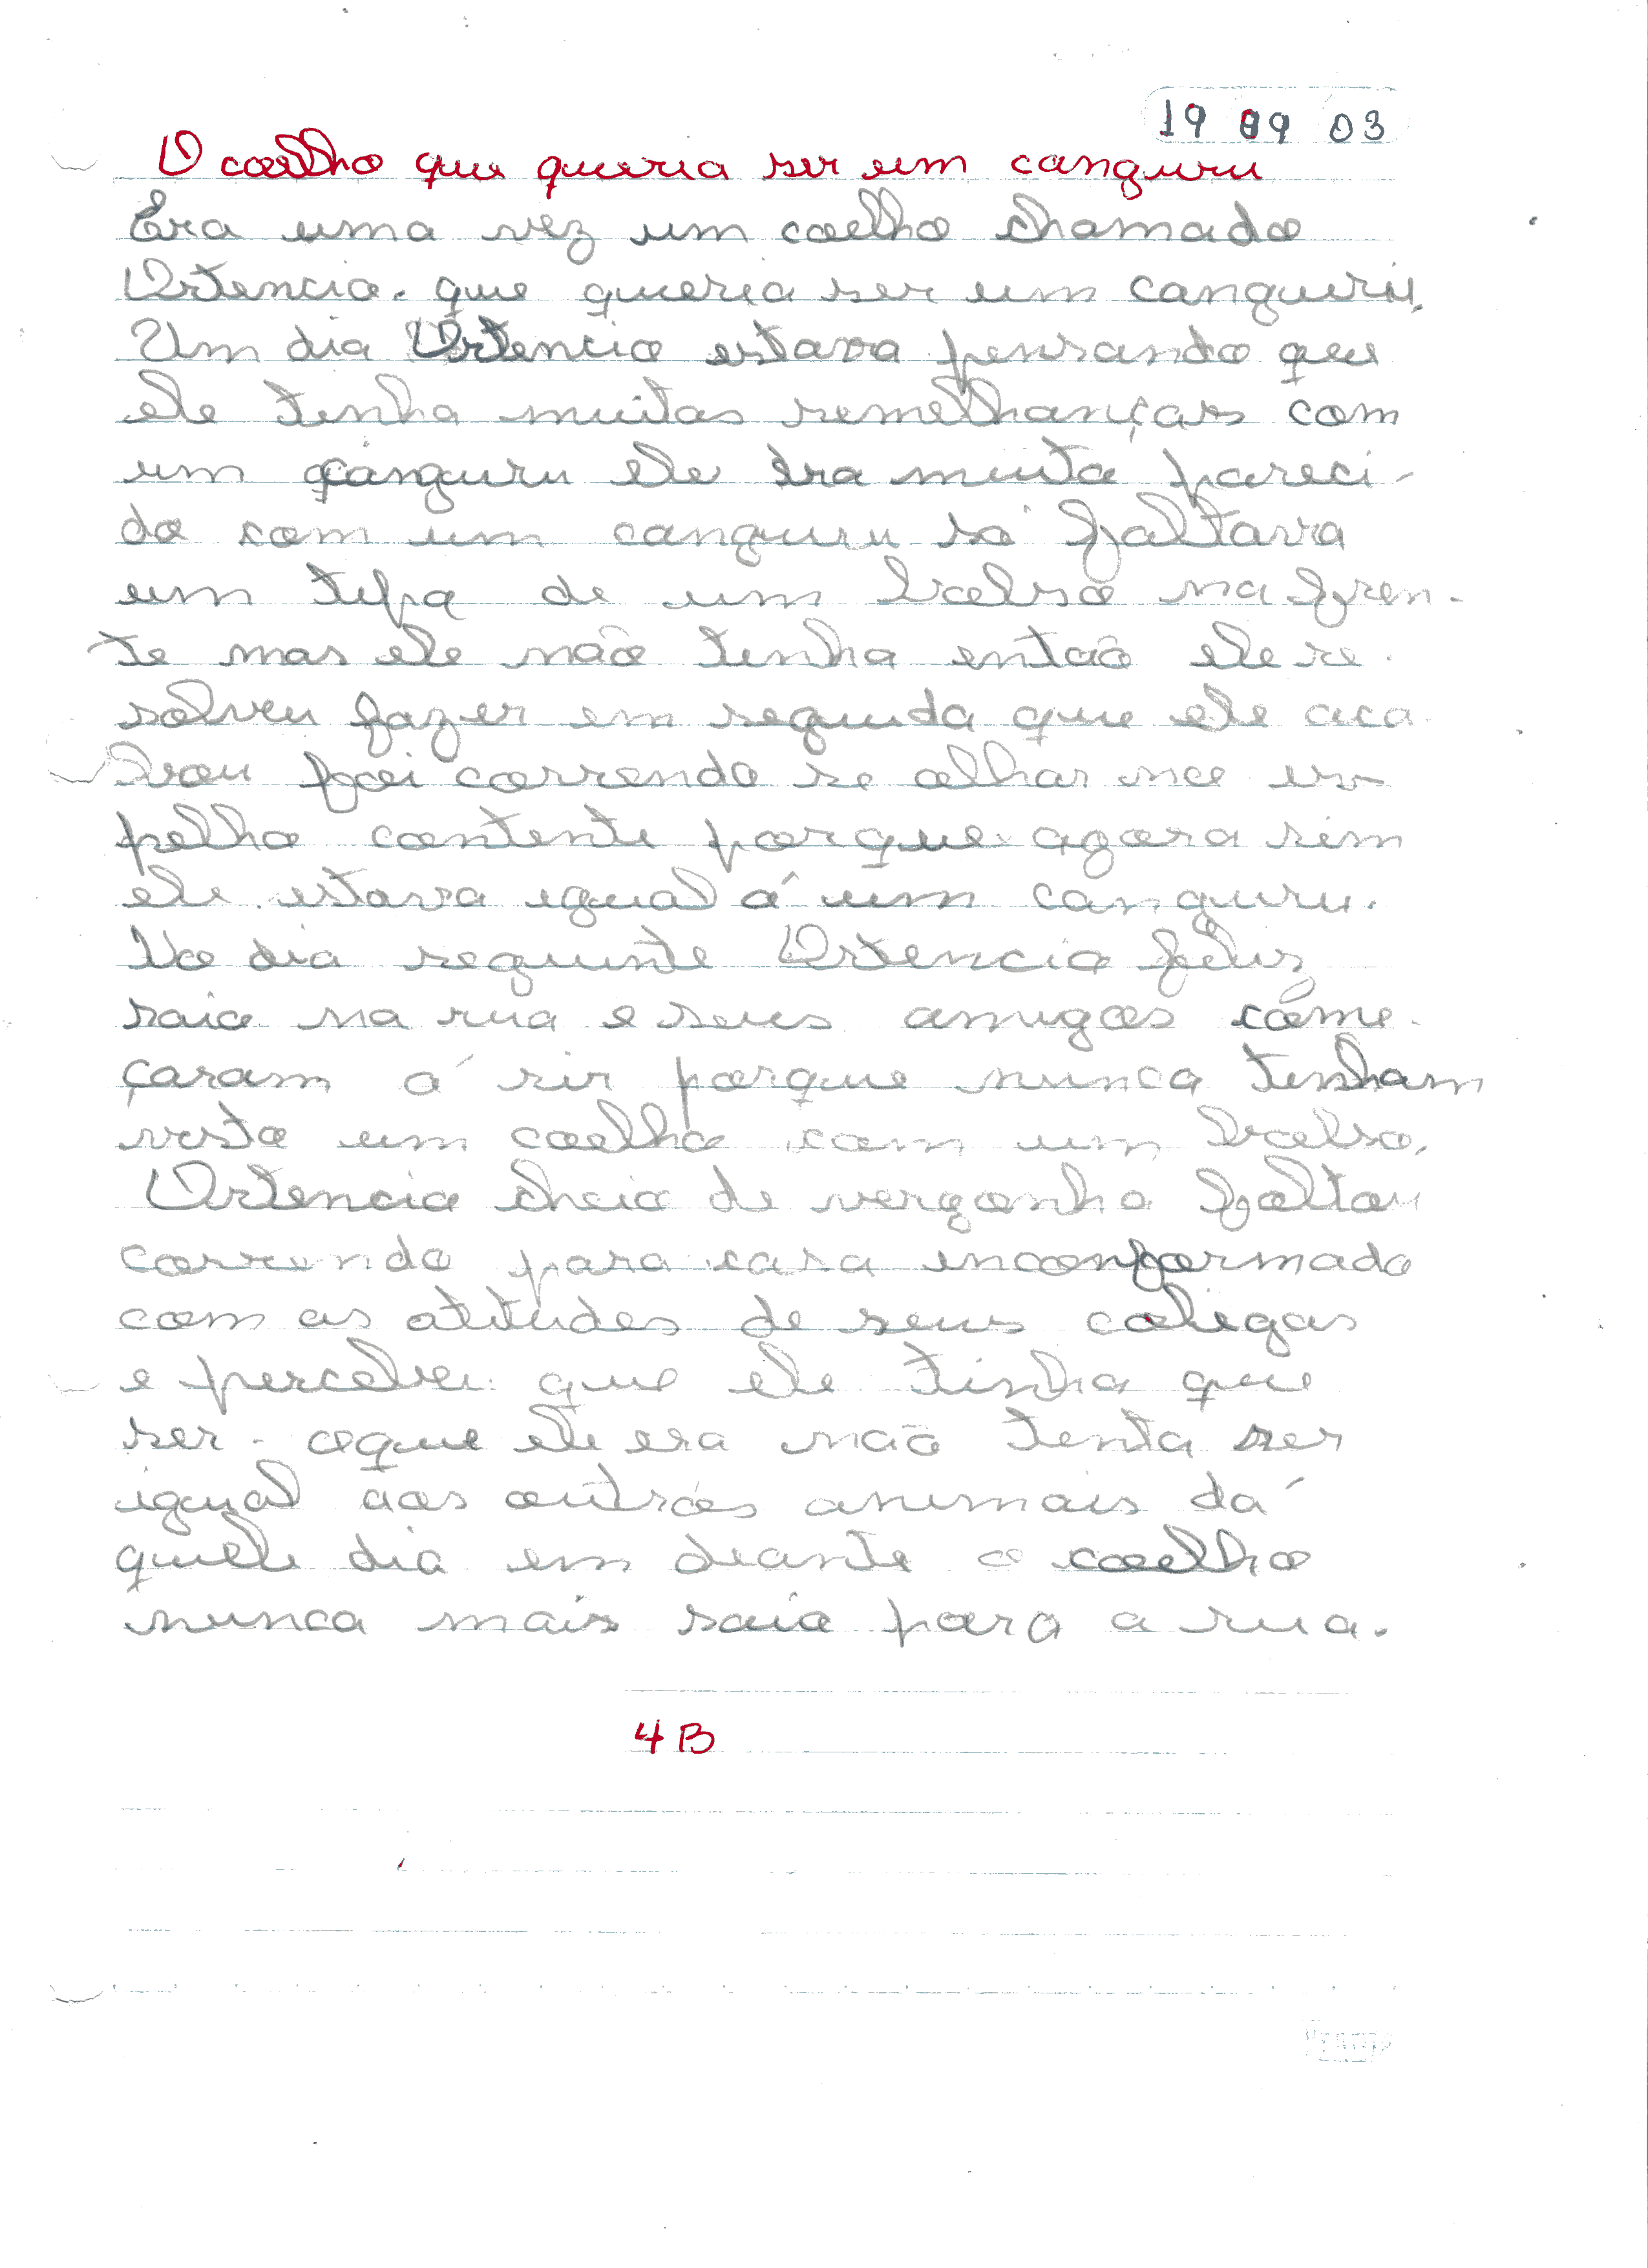 19 09 03
O coelho que queria ser um canguru
Era uma vez um coelho chamado
Ortencio. que queria ser um canguru.
Um dia Ortencio estava pensando que
ele tinha muitas semelhanças com
um canguru ele era muito pareci-
do com um canguru só faltava
um tipo de um bolso na fren-
te mas ele não tinha então ele re-
solveu fazer em seguida que ele aca-
bou foi correndo se olhar no es-
pelho contente porque agora sim
ele estava igual á um canguru.
No dia seguinte Ortencio feliz
saio na rua e seus amigos come-
çaram á rir porque nunca tinham
visto um coelho com um bolso.
Ortencio cheio de vergonha foltou
correndo para casa inconformado
com as atitudes de seus colegas
e percebeu que ele tinha que
ser. oque ele era não tenta ser
igual aos outros animais dá
quele dia em diante o coelho
nunca mais saio para a rua.
4B